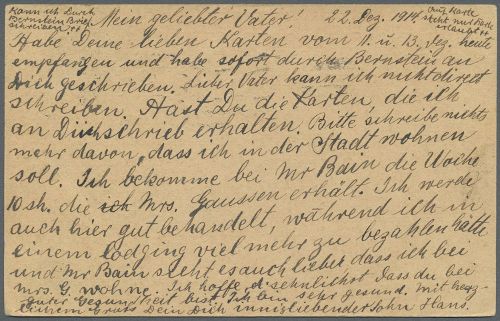 Kann ich Durch
Bernstein Brief
schreiben?
Auf Karte
steht nur Karte
erlaubt
Mein geliebter Vater, 22. Dez. 1914.
Habe Deine lieben Karten vom 11. u. 13. Dez. heute
empfangen und habe sofort durch Bernstein an
Dich geschrieben. Lieber Vater kann ich nicht direct
schreiben. Hast Du die Karten, die ich
an Dich schrieb erhalten. Bitte schreibe nichts
mehr davon, dass ich in der Stadt wohnen
soll. Ich bekomme bei Mr Bain die Woche
10 sh. die ich Mrs. Gaussen erhält. Ich werde
auch hier gut behandelt, während ich in
einem lodging viel mehr zu bezahlen hätte
und Mr Bain sieht es auch lieber dass ich bei
Mrs. G. wohne. Ich hoffe sehnlichst dass du bei
guter Gesundheit bist. Ich bin sehr gesund. Mit herz-
lichem Gruss Dein Dich innigliebender Sohn Hans.